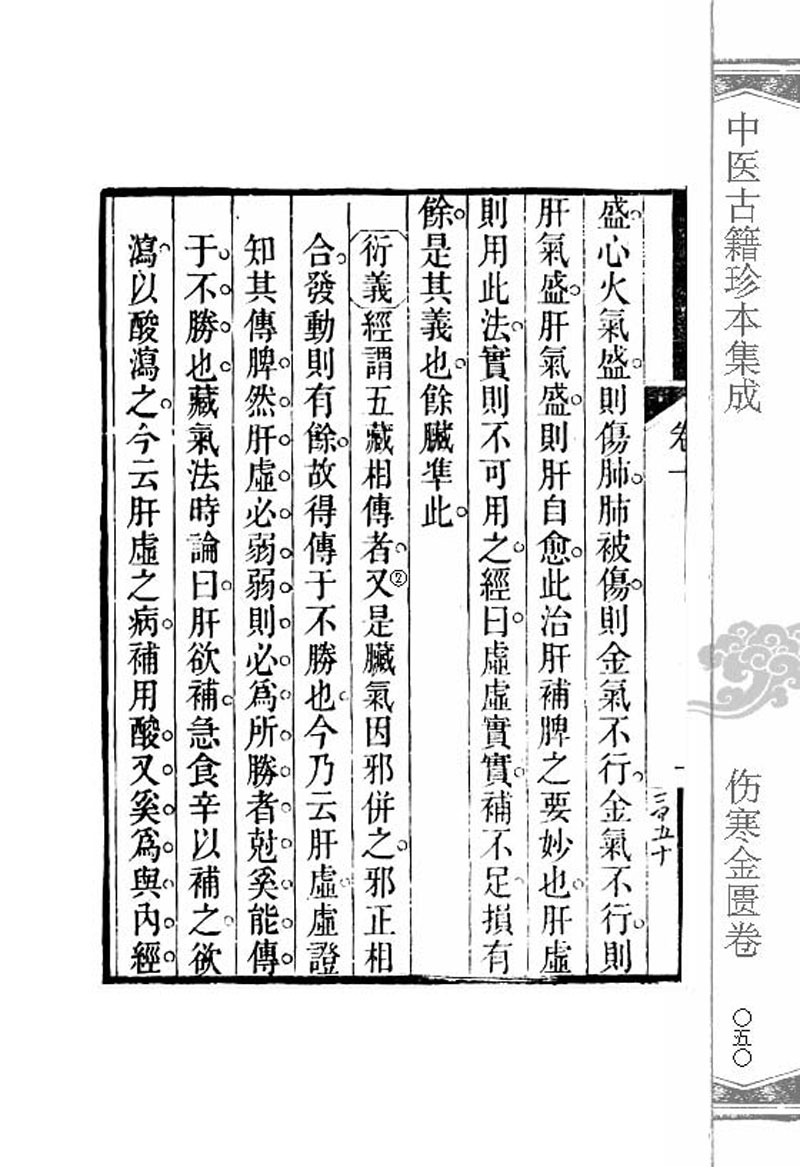 中医古籍珍本集成
伤寒金匮卷
〇五〇
卷一
一
盛。心火氣盛。則傷肺。肺被傷。則金氣不行。金氣不行。則
肝氣盛。肝氣盛。則肝自愈。此治肝補脾之要妙也。肝虛
則用此法。實則不可用之。經曰。虛虛實實。補不足。損有
餘。是其義也。餘臟準此。
衍義經謂五藏相傳者。又②是臟氣因邪併之。邪正相
合。發動則有餘。故得傳于不勝也。今乃云肝虛。虛證
知其傳脾。然肝虛必弱。弱則必為所勝者尅。奚能傳
于不勝也。藏氣法時論曰。肝欲補。急食辛以補之。欲
瀉。以酸瀉之。今云肝虛之病。補用酸。又奚為與內經